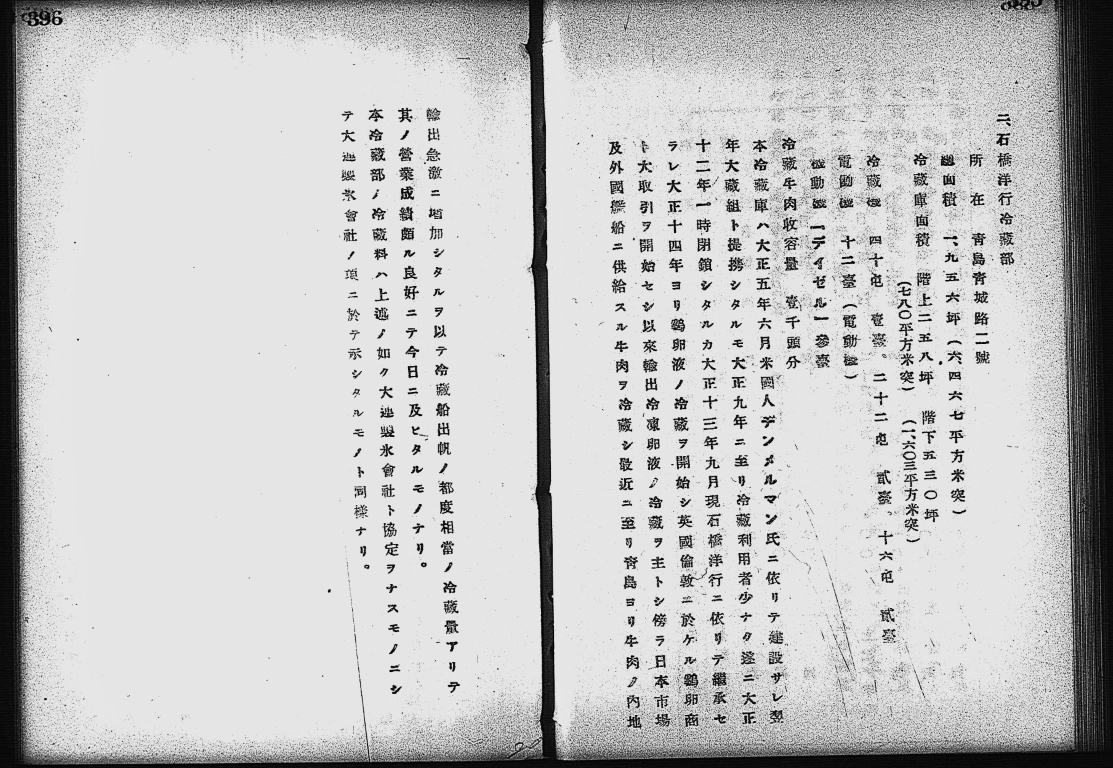 二、石橋洋行冷藏部
所在 青島青城路二號
總面積 一、九五六坪(六、四六七平方米突)
冷藏庫面積 階上二五八坪 階下五三〇坪
(七八〇平方米突) (一、六〇三平方米突)
冷藏機 四十屯 壹臺。二十二屯 貳臺。十六屯 貳臺
電動機 十二臺(電動機)
機動機「デイゼル」參臺
冷藏牛肉收容量 壹千頭分
本冷藏庫ハ大正五年六月米國人デンメルマン氏ニ依リテ建設サレ翌
年大藏組ト提携シタルモ大正九年ニ至リ冷藏利用者少ナク遂ニ大正
十二年一時閉鎖シタルカ大正十三年九月現石橋洋行ニ依リテ繼承セ
ラレ大正十四年ヨリ鷄卵液ノ冷藏ヲ開始シ英國倫敦ニ於ケル鷄卵商
ト大取引ヲ開始セシ以來輸出冷凍卵液ノ冷藏ヲ主トシ傍ラ日本市場
及外國艦船ニ供給スル牛肉ヲ冷藏シ最近ニ至リ青島ヨリ牛肉ノ內地
輸出急激ニ增加シタルヲ以テ冷藏船出帆ノ都度相當ノ冷藏量アリテ
其ノ營業成績頗ル良好ニテ今日ニ及ヒタルモノナリ。
本冷藏部ノ冷藏料ハ上述ノ如ク大連製氷會社ト協定ヲナスモノニシ
テ大連製氷會社ノ項ニ於テ示シタルモノト同樣ナリ。
396